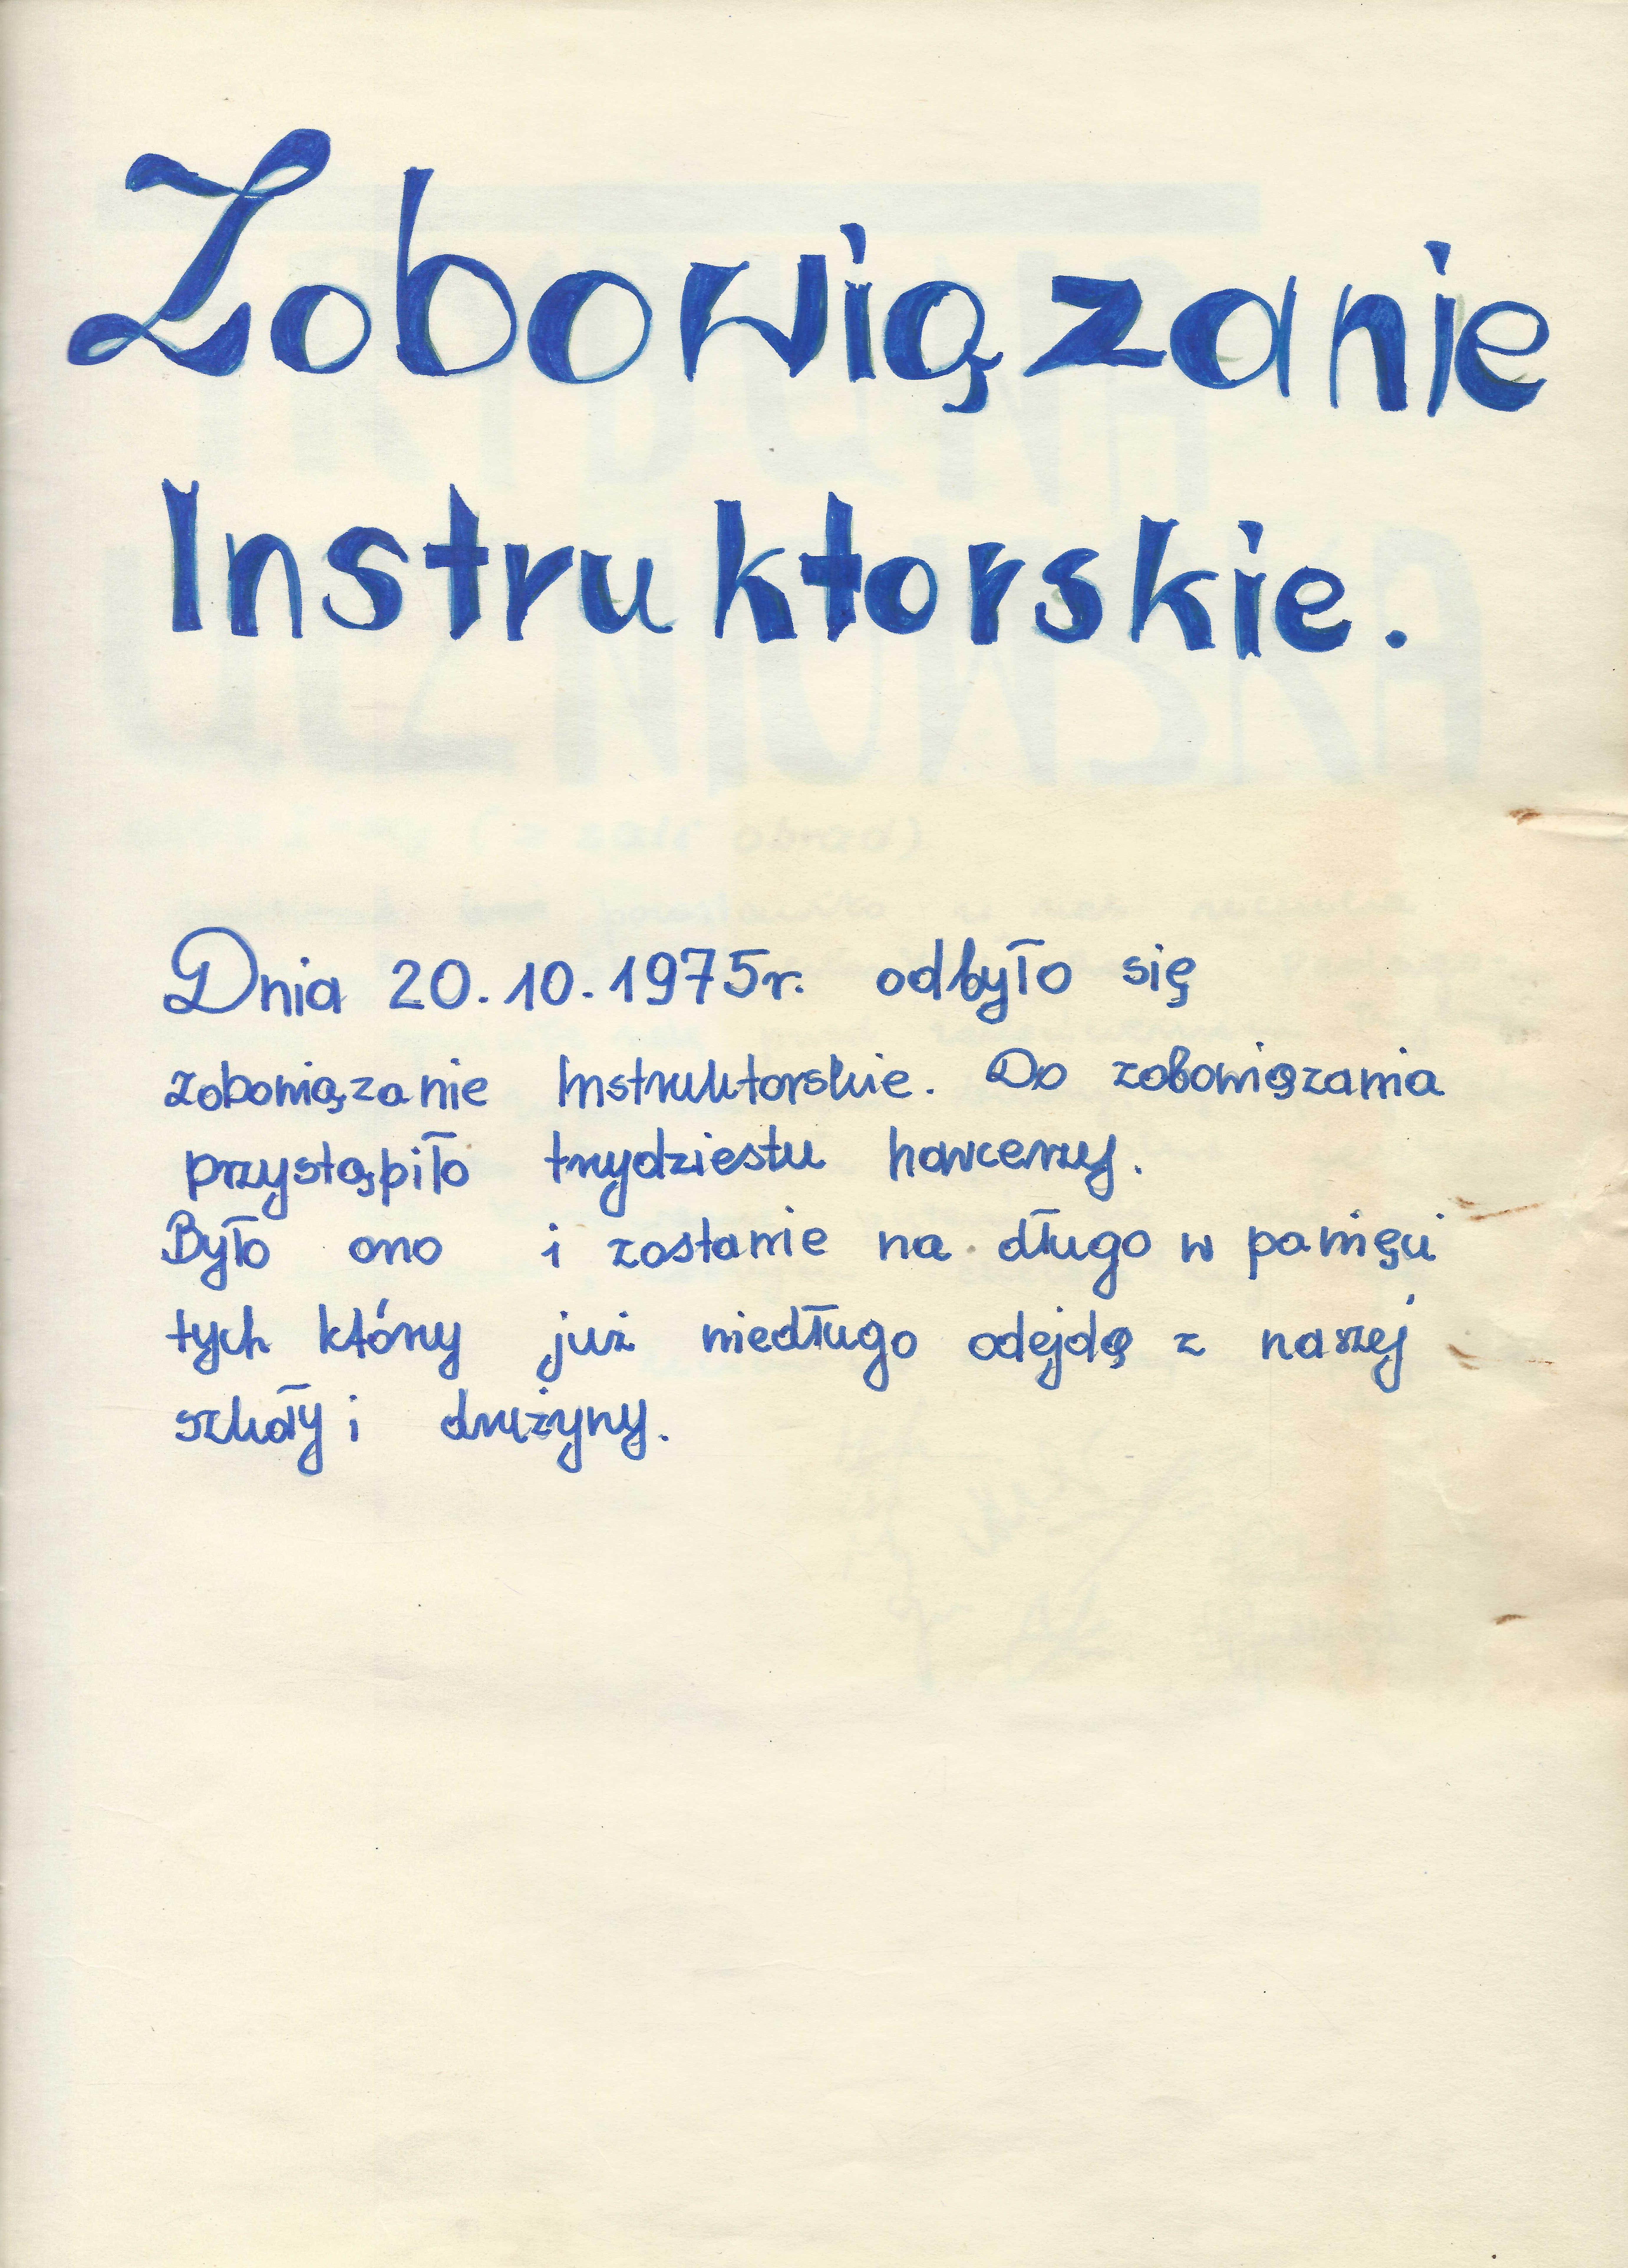 Zobowiązanie
Instruktorskie.
Dnia 20.10.1975r. odbyło się
zobowiązanie Instruktorskie. Do zobowiązania
przystąpiło trzydziestu harcerzy.
Było ono i zostanie na długo w pamięci
tych którzy już niedługo odejdą z naszej
szkoły i drużyny.